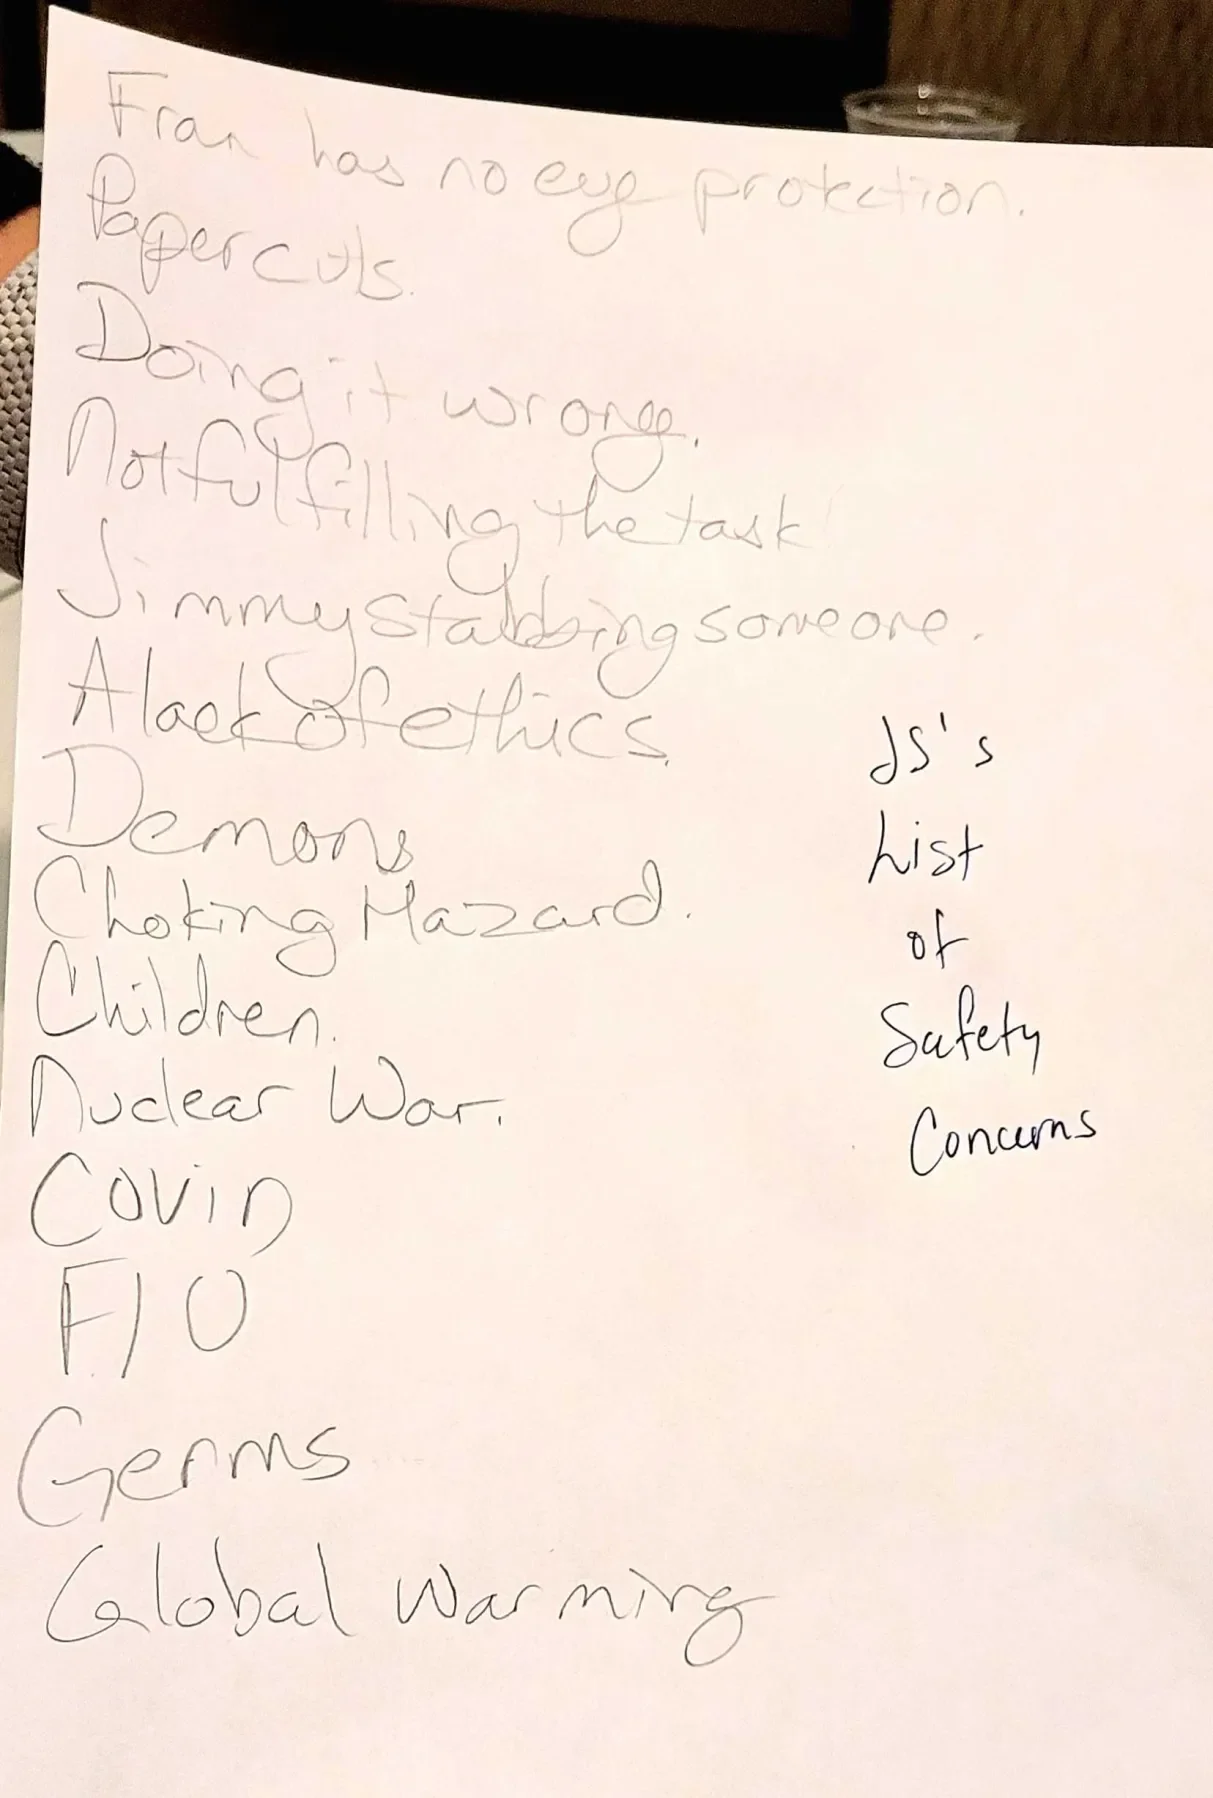 Fran has no eye protection.
Papercuts.
Doing it wrong.
Not fulfilling the task
Jimmy stabbing someone.
A lack of ethics.
Demons
Choking Hazard.
Children.
Nuclear War.
COVID
Germs
Global Warming
JS's
List
of
Safety
Concerns